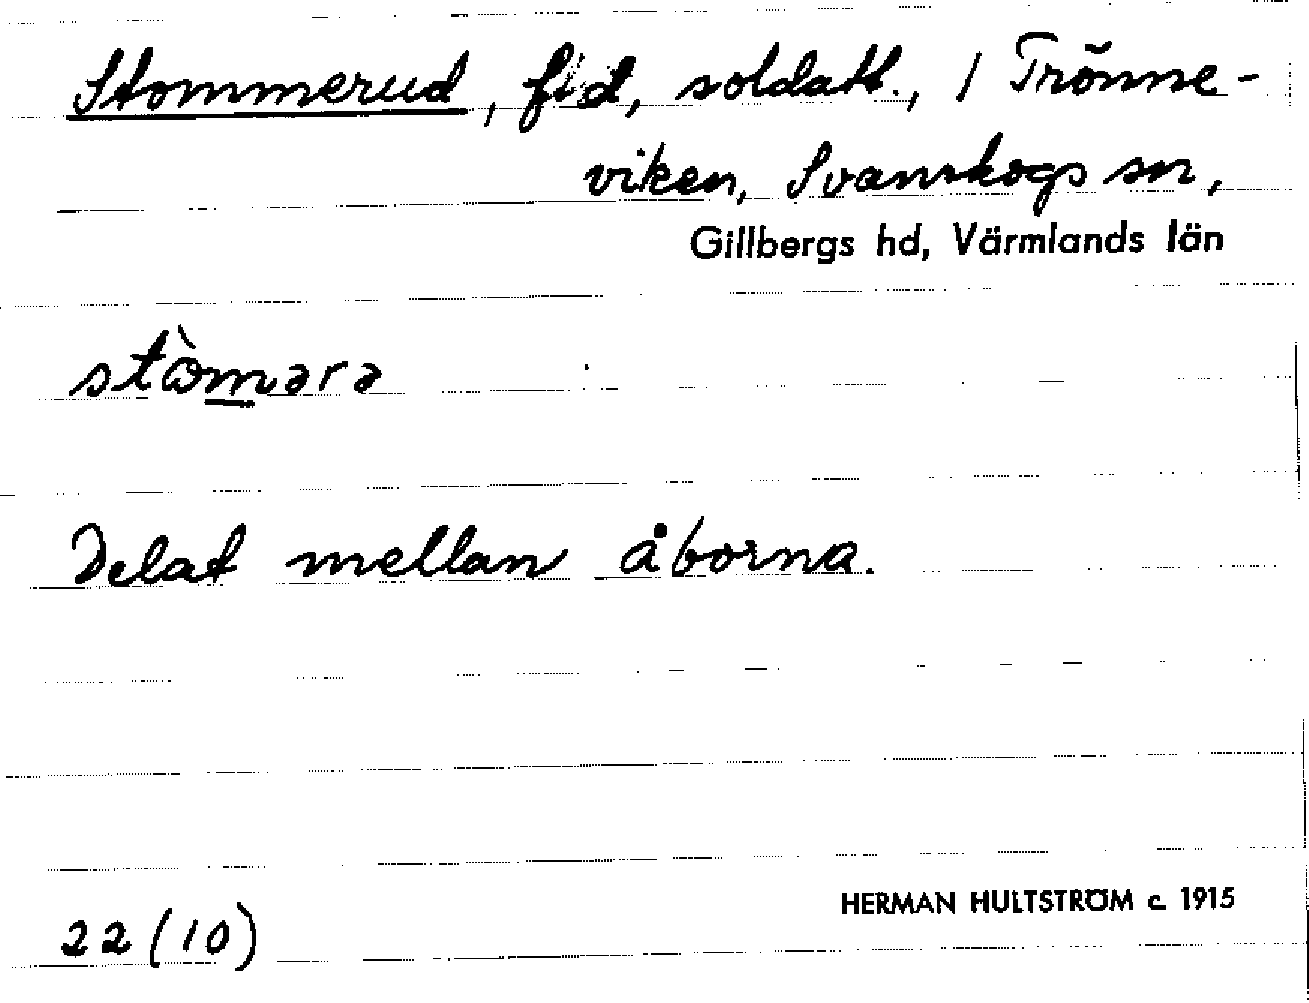 Stommerud, f.d. soldatt., / Trönne-
viken, Svanskogs sn,
Gillbergs hd, Värmlands län
stòmərə
Delat mellan åborna.
HERMAN HULTSTRÖM c. 1915
22 (10)